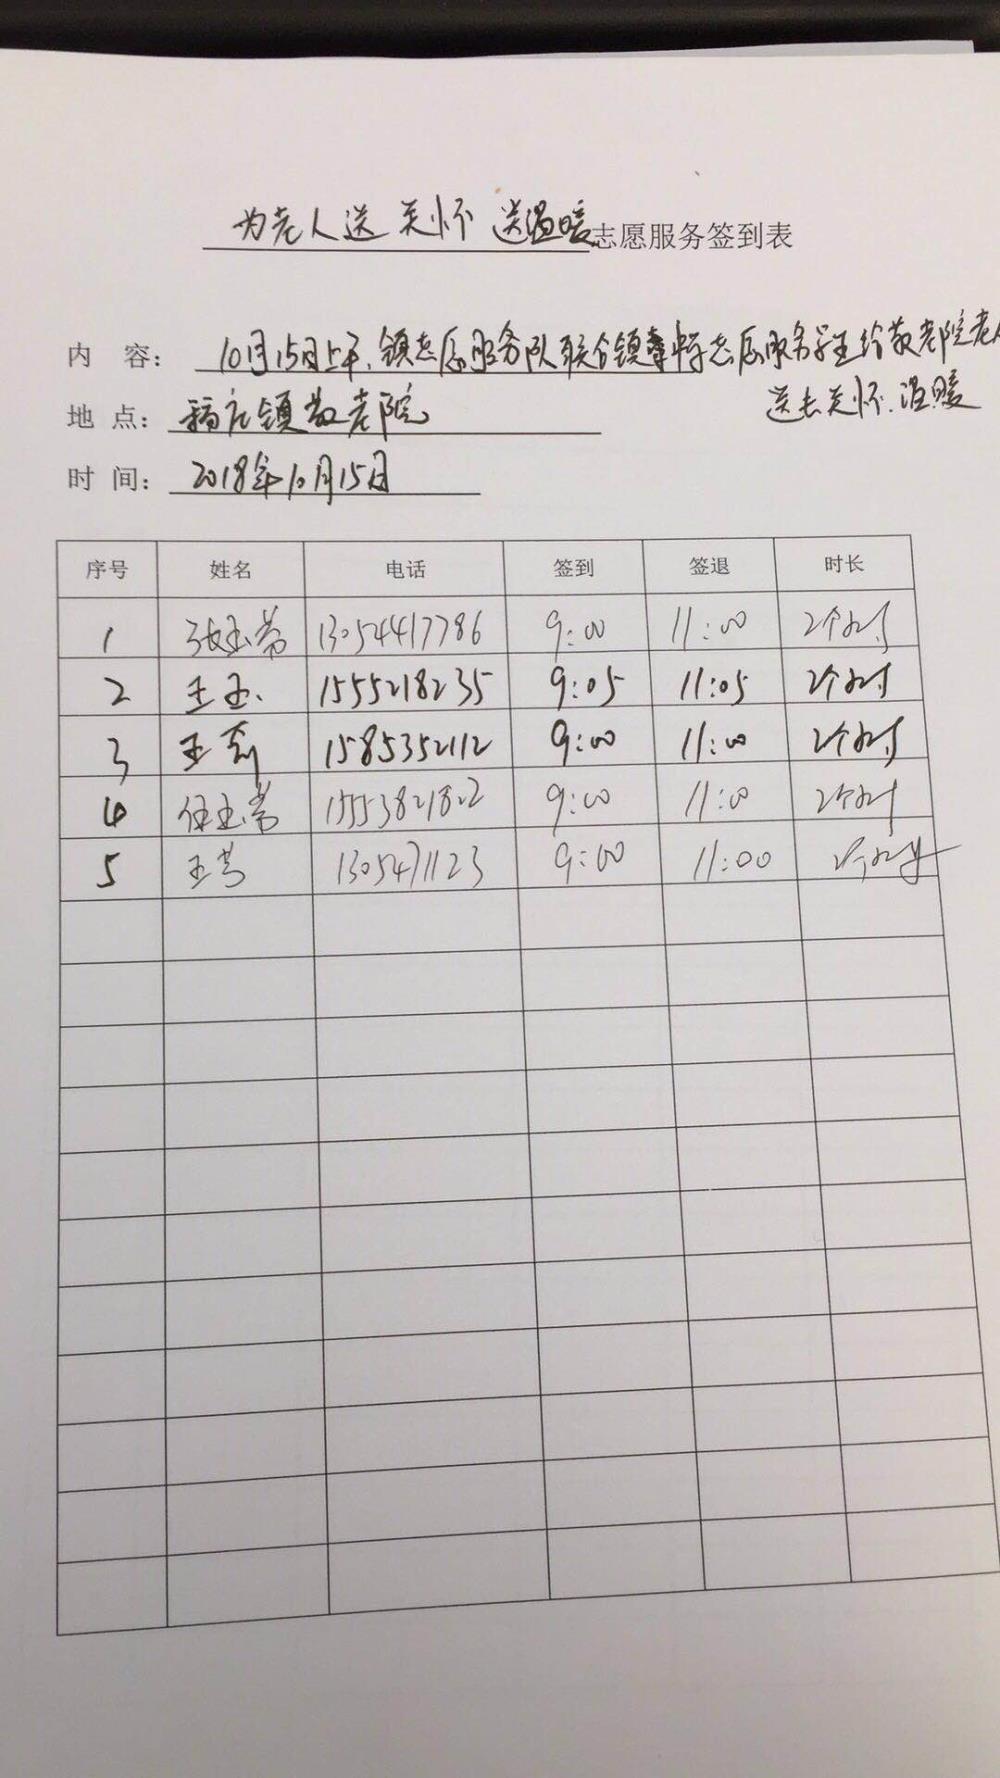 为老人送关怀 送温暖志愿服务签到表
内 容： 10月15日上午,镇志愿服务队联合镇志愿服务学生给敬老院老人
送去关怀.温暖
地 点： 镇敬老院
时 间： 2018年10月15日
序号 姓名 电话 签到 签退 时长
1 13054417786 9:00 11:00 2个小时
2 王玉 1555218235 9:05 11:05 2个小时
3 王 1585352112 9:00 11:00 2个小时
4 9:00 11:00 2个小时
5 王 1305471123 9:00 11:00 2个小时